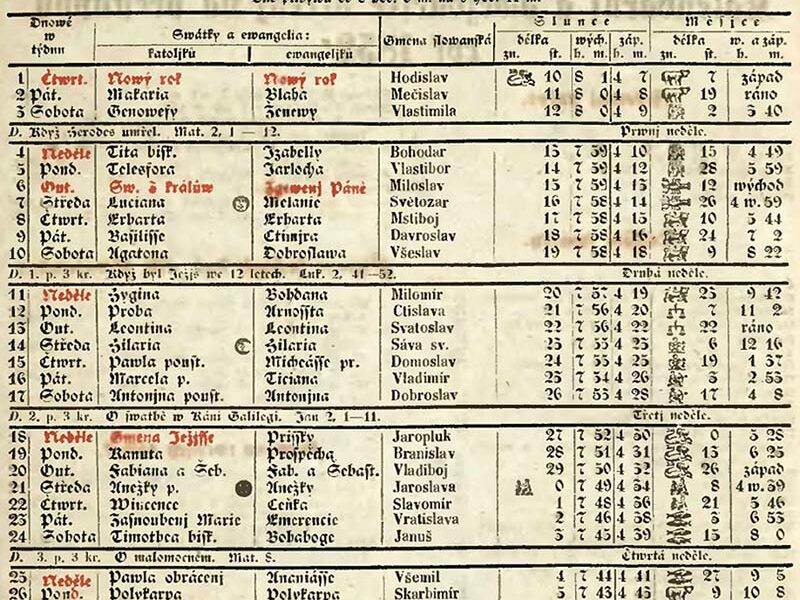 Dnowé w týdnu Swátky a ewangelia: Gmena slowanská Slunce Měsjce
katoljků ewangeljků délka zn. st. wých. h. m. záp. h. m. délka zn. st. w. a záp. h. m.
1 Čtwrt. Nowý rok Nowý rok Hodislav 10 8 1 4 7 7 západ
2 Pát. Makaria Blaha Mečislav 11 8 0 4 8 19 ráno
3 Sobota Genowefy Ženewy Vlastimila 12 8 0 4 9 2 3 40
D. Když Herodes umřel. Mat. 2, 1 — 12. Prwnj neděle.
4 Neděle Tita bisk. Izabelly Bohodar 13 7 59 4 10 15 4 49
5 Pond. Telesfora Jarlocha Vlastibor 14 7 59 4 12 28 5 59
6 Out. Sw. 3 králůw Zgewenj Páně Miloslav 15 7 59 4 13 12 východ
7 Středa Luciana Melanie Světozar 16 7 58 4 14 26 4 w. 59
8 Čtwrt. Erharta Erharta Mstiboj 17 7 58 4 15 10 5 44
9 Pát. Basilisse Ctimjra Davroslav 18 7 58 4 16 24 7 2
10 Sobota Agatona Dobroslawa Všeslav 19 7 58 4 18 9 8 22
D. 1. p. 3 kr. Když byl Ježjs we 12 letech. Luk. 2, 41—52. Druhá neděle.
11 Neděle Hygina Bohdana Milomír 20 7 57 4 19 23 9 42
12 Pond. Proba Arnossta Ctislava 21 7 56 4 20 7 11 2
13 Out. Leontina Leontina Svatoslav 22 7 56 4 22 22 ráno
14 Středa Hilaria Hilaria Sáva sv. 23 7 55 4 23 6 12 16
15 Čtwrt. Pawla poust. Micheásse pr. Domoslav 24 7 55 4 25 19 1 37
16 Pát. Marcela p. Ticiana Vladimír 25 7 54 4 26 3 2 55
17 Sobota Antonjna poust. Antonjna Dobroslav 26 7 53 4 28 17 4 8
D. 2. p. 3 kr. O swatbě w Káni Galilegi. Jan 2, 1—11. Třetj neděle.
18 Neděle Gmena Ježjsse Prissky Jaropluk 27 7 52 4 30 0 5 28
19 Pond. Kanuta Prospěcha Branislav 28 7 51 4 31 13 6 25
20 Out. Fabiana a Šeb. Fab. a Sebast. Vladiboj 29 7 50 4 32 26 západ
21 Středa Anežky p. Anežky Jaroslava 0 7 49 4 34 8 4 w. 39
22 Čtwrt. Wincence Ceňka Slavomír 1 7 48 4 36 21 5 46
23 Pát. Zasnoubenj Marie Emerencie Vratislava 2 7 46 4 38 3 6 53
24 Sobota Timothea bisk. Bohaboge Januš 3 7 45 4 39 15 8 0
D. 3. p. 3 kr. O malomocném. Mat. 8. Čtwrtá neděle.
25 Neděle Pawla obrácenj Ananiásse Všemil 4 7 44 4 41 27 9 5
26 Pond. Polykarpa Polykarpa Skarbimír 5 7 43 4 9 10 8